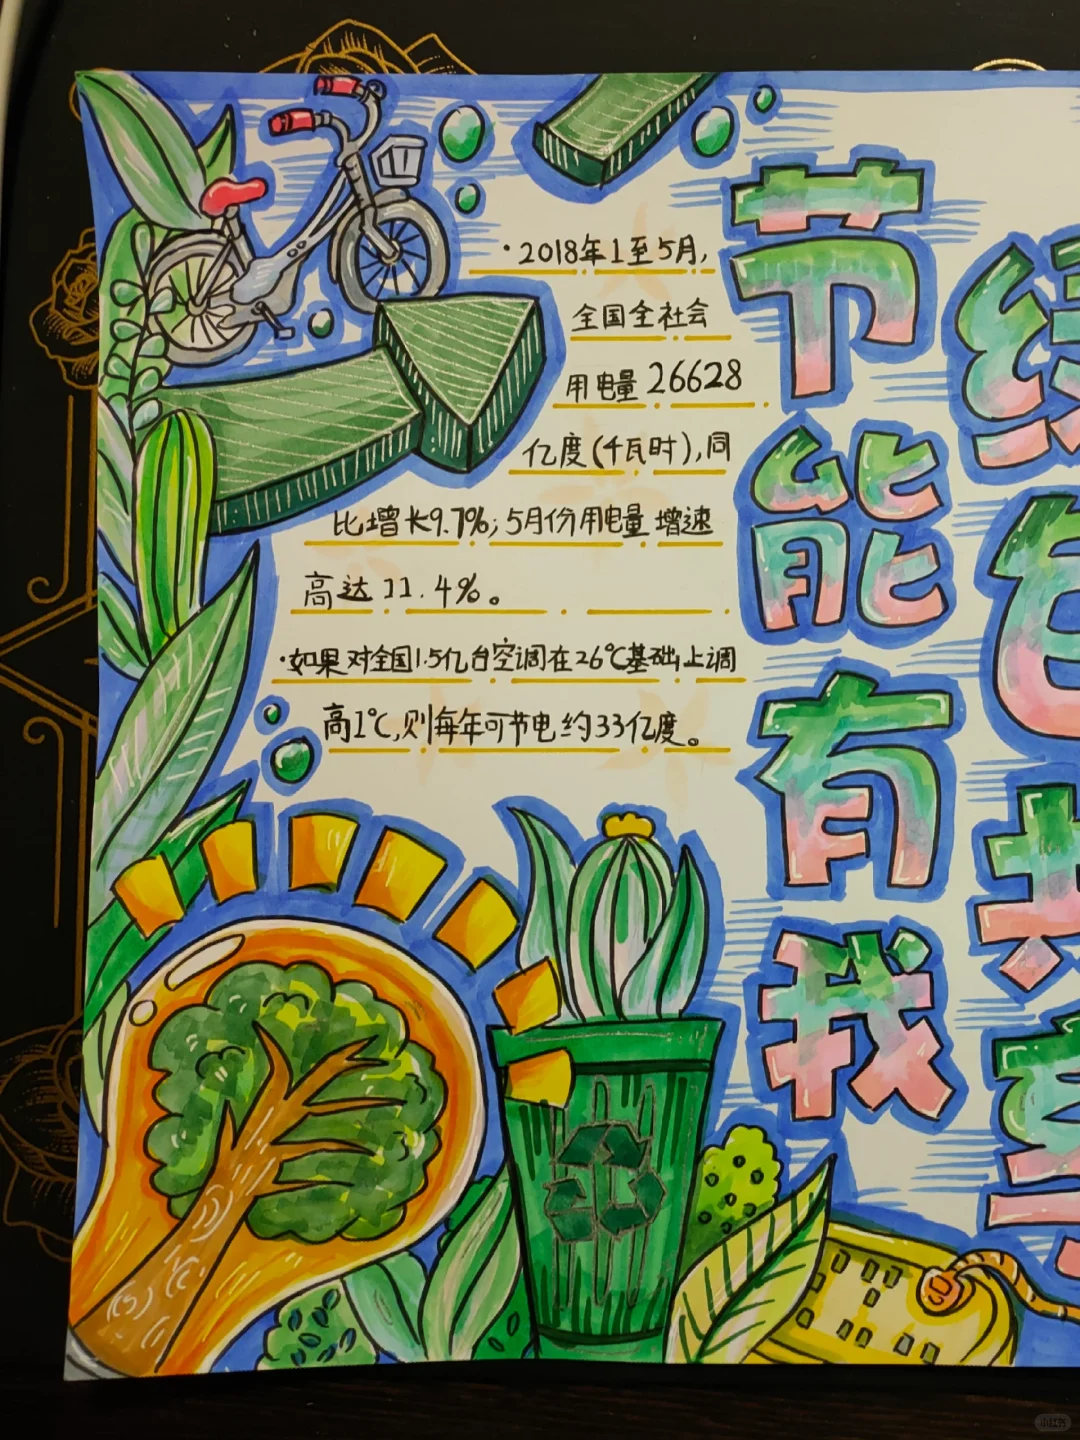 ·2018年1至5月,
全国全社会
用电量26628
亿度(千瓦时),同
比增长9.7%;5月份用电量增速
高达11.4%。
·如果对全国1.5亿台空调在26℃基础上调
高1℃,则每年可节电约33亿度。
节能有我
绿色共享
小红书